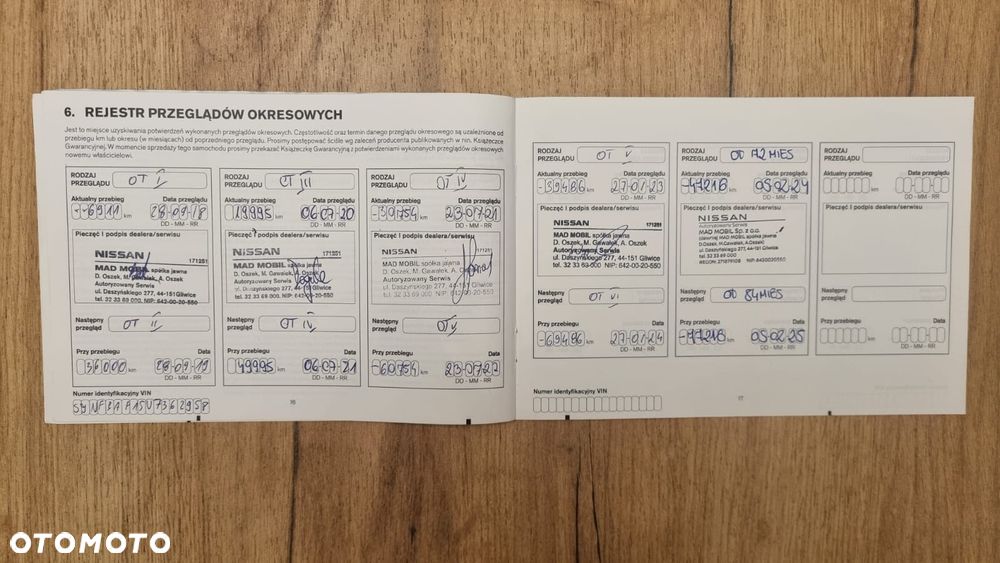 6. REJESTR PRZEGLĄDÓW OKRESOWYCH
Jest to miejsce uzyskiwania potwierdzeń wykonanych przeglądów okresowych. Częstotliwość oraz termin danego przeglądu okresowego są uzależnione od
przebiegu km lub okresu (w miesiącach) od poprzedniego przeglądu. Prosimy postępować ściśle wg zaleceń producenta publikowanych w nin. Książeczce
Gwarancyjnej. W momencie sprzedaży tego samochodu prosimy przekazać Książeczkę Gwarancyjną z potwierdzeniami wykonanych przeglądów okresowych
nowemu właścicielowi.
RODZAJ PRZEGLĄDU OT I
Aktualny przebieg Data przeglądu
-6911 km 28-09-18
DD - MM - RR
Pieczęć i podpis dealera/serwisu
NISSAN 171251
MAD MOBIL spółka jawna
D. Oszek, M. Gawalek, A. Oszek
Autoryzowany Serwis
ul. Daszyńskiego 277, 44-151 Gliwice
tel. 32 33 69 000, NIP: 642-00-20-550
Następny przegląd OT II
Przy przebiegu Data
36000 km 28-09-19
DD - MM - RR
Numer identyfikacyjny VIN
RODZAJ PRZEGLĄDU OT III
Aktualny przebieg Data przeglądu
19995 km 06-07-20
DD - MM - RR
Pieczęć i podpis dealera/serwisu
NISSAN 171251
MAD MOBIL spółka jawna
D. Oszek, M. Gawalek, A. Oszek
Autoryzowany Serwis
ul. Daszyńskiego 277, 44-151 Gliwice
tel. 32 33 69 000, NIP: 642-00-20-550
Następny przegląd OT IV
Przy przebiegu Data
49995 km 06-07-21
DD - MM - RR
16
RODZAJ PRZEGLĄDU OT IV
Aktualny przebieg Data przeglądu
-30754 km 23-07-21
DD - MM - RR
Pieczęć i podpis dealera/serwisu
NISSAN 171251
MAD MOBIL spółka jawna
D. Oszek, M. Gawalek, A. Oszek
Autoryzowany Serwis
ul. Daszyńskiego 277, 44-151 Gliwice
tel. 32 33 69 000, NIP: 642-00-20-550
Następny przegląd OT V
Przy przebiegu Data
-60754 km 23-07-22
DD - MM - RR
RODZAJ PRZEGLĄDU OT V
Aktualny przebieg Data przeglądu
-39486 km 27-01-23
DD - MM - RR
Pieczęć i podpis dealera/serwisu
NISSAN 171251
MAD MOBIL spółka jawna
D. Oszek, M. Gawalek, A. Oszek
Autoryzowany Serwis
ul. Daszyńskiego 277, 44-151 Gliwice
tel. 32 33 69 000, NIP: 642-00-20-550
Następny przegląd OT VI
Przy przebiegu Data
-69486 km 27-01-24
DD - MM - RR
Numer identyfikacyjny VIN
RODZAJ PRZEGLĄDU OD 72 MIES
Aktualny przebieg Data przeglądu
-47216 km 05-02-24
DD - MM - RR
Pieczęć i podpis dealera/serwisu
NISSAN
Autoryzowany Serwis
MAD MOBIL Sp. z o.o.
ul. Daszyńskiego 277, 44-151 Gliwice
tel. 32 33 69 000
Następny przegląd OD 84 MIES
Przy przebiegu Data
-77216 km 05-02-25
DD - MM - RR
17
RODZAJ PRZEGLĄDU
Aktualny przebieg Data przeglądu
km
DD - MM - RR
Pieczęć i podpis dealera/serwisu
Następny przegląd
Przy przebiegu Data
km
DD - MM - RR
OTOMOTO